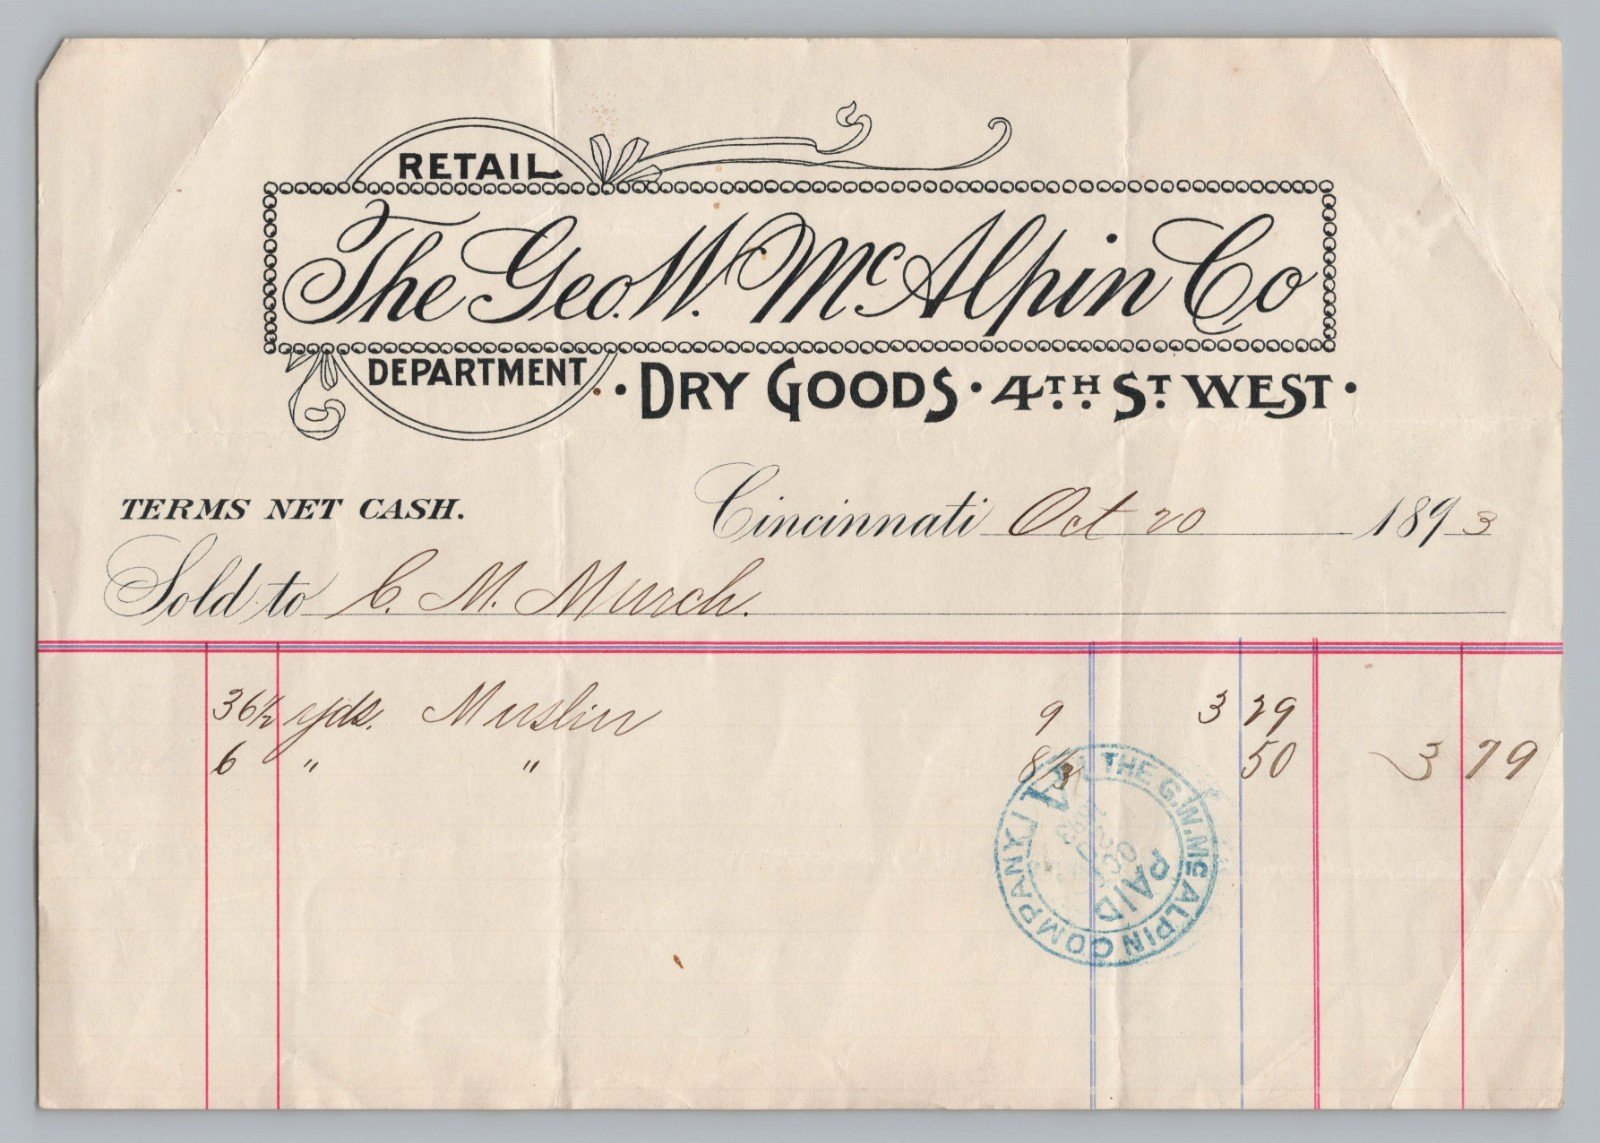 RETAIL
The Geo. W. McAlpin Co
DEPARTMENT
• DRY GOODS • 4TH ST WEST •
TERMS NET CASH.
Cincinnati Oct 20 1893
Sold to C. M. Murch.
36½ yds. Muslin 9 3 29
6 " " 8⅓ 50 3 79
THE G.W. Mc ALPIN COMPANY.
PAID
OCT